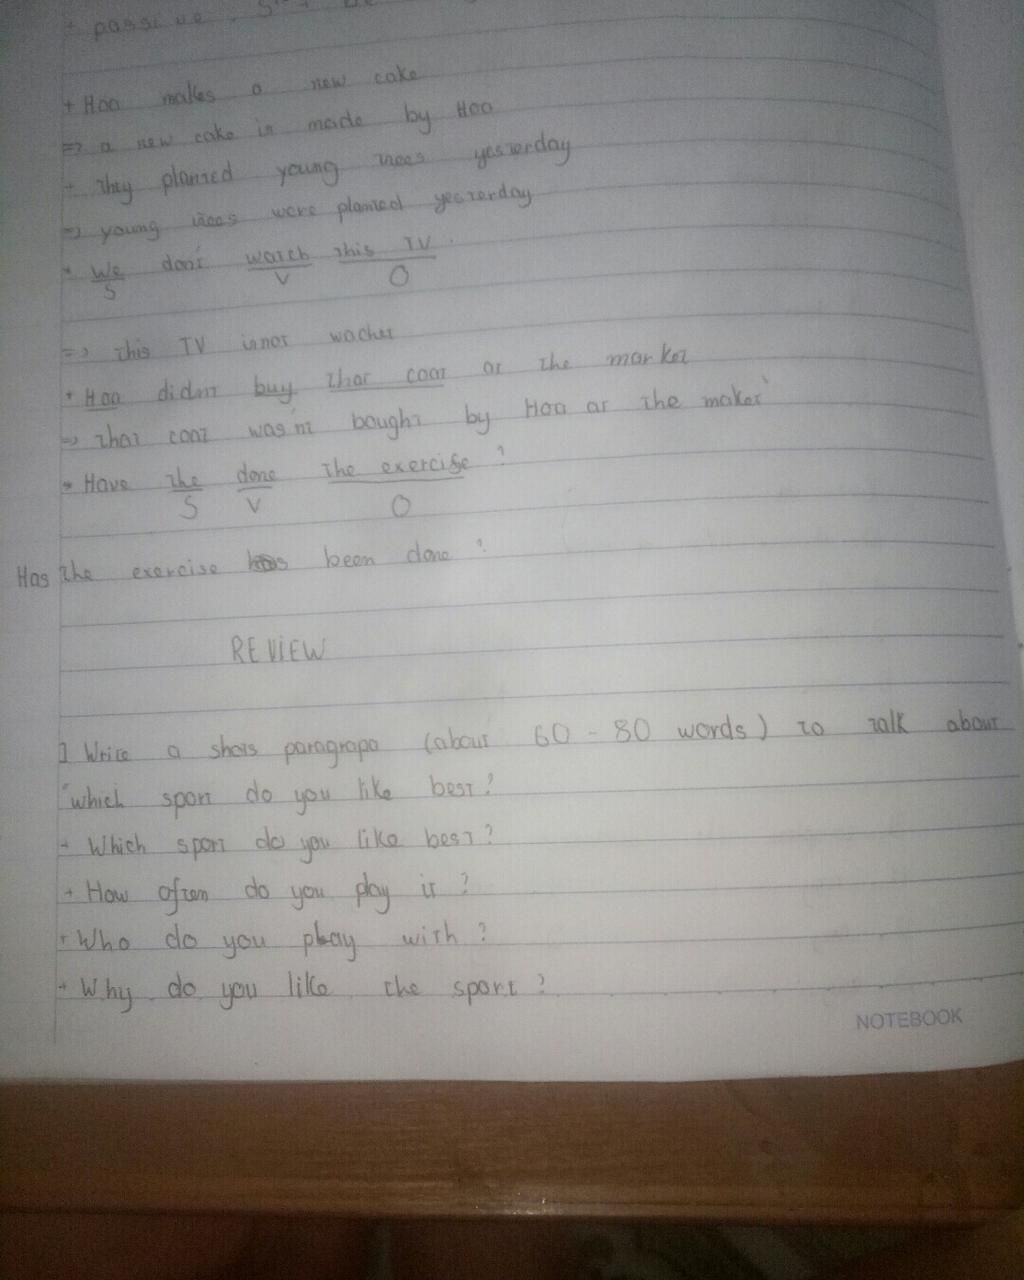 + passive
+ Hoa makes a new cake
=> a new cake is made by Hoa
+ They planted young trees yesterday
=> young trees were planted yesterday
* We don't watch this TV.
S V O
=> this TV isnot wacher
+ Hoa didnt buy that coat at the market
=> that coat was'nt bought by Hoa at the maket
* Have the done the exercise ?
S V O
Has the exercise been done ?
REVIEW
1 Write a shots paragrapa (about 60 - 80 words) to talk about
"which sport do you like best?
+ Which sport do you like best?
+ How often do you play it ?
+ Who do you play with ?
+ Why do you like the sport ?
NOTEBOOK